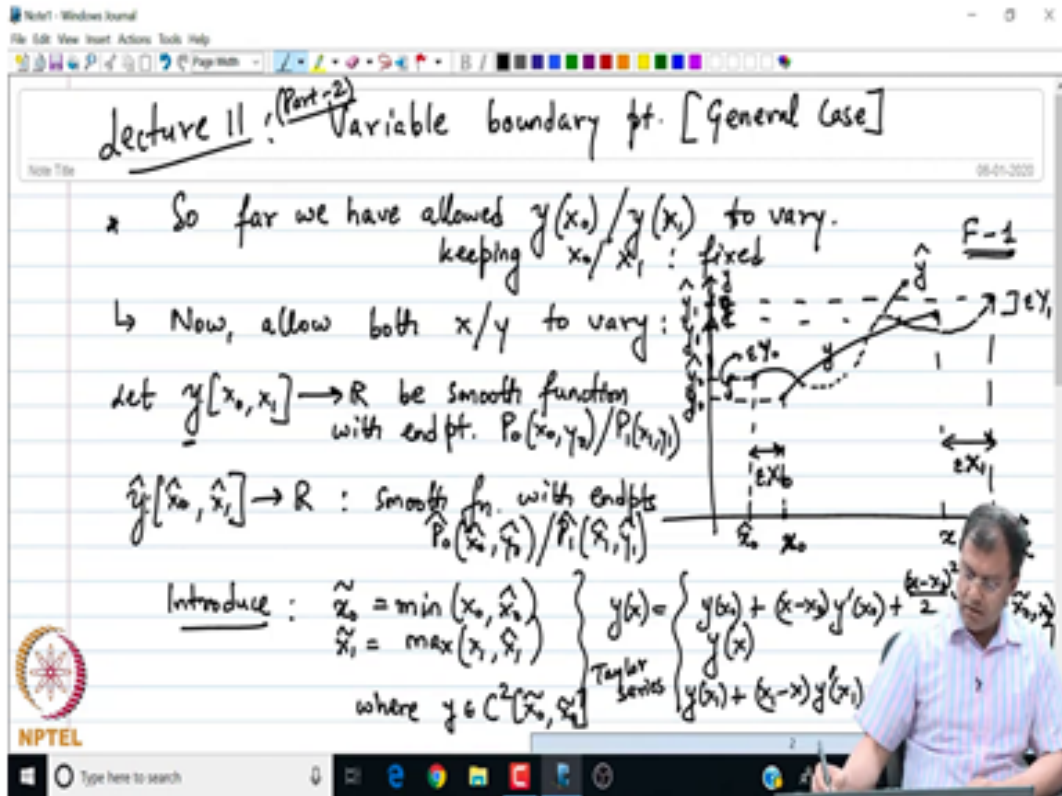 Note1 - Windows Journal
File Edit View Insert Actions Tools Help
Page Width
B I
Lecture 11 : (Part-2) Variable boundary pt. [General Case]
Note Title
06-01-2020
* So far we have allowed y(x₀)/y(x₁) to vary.
keeping x₀/x₁ : fixed
F-1
↳ Now, allow both x/y to vary :
ŷ
y
εY₁
εY₀
Let y[x₀, x₁] → R be smooth function
with endpt. P₀(x₀, y₀)/P₁(x₁, y₁)
εX₀
εX₁
ŷ:[x̂₀, x̂₁] → R : smooth fn. with endpts
P̂₀(x̂₀, ŷ₀)/P̂₁(x̂₁, ŷ₁)
x̂₀ x₀ x
Introduce : x̃₀ = min (x₀, x̂₀)
x̃₁ = max (x₁, x̂₁)
where y ∈ C²[x̃₀, x̃₁]
Taylor series
y(x) = { y(x₀) + (x-x₀) y'(x₀) + (x-x₀)²/2
y(x)
y(x₁) + (x₁-x) y'(x₁)
NPTEL
2
Type here to search